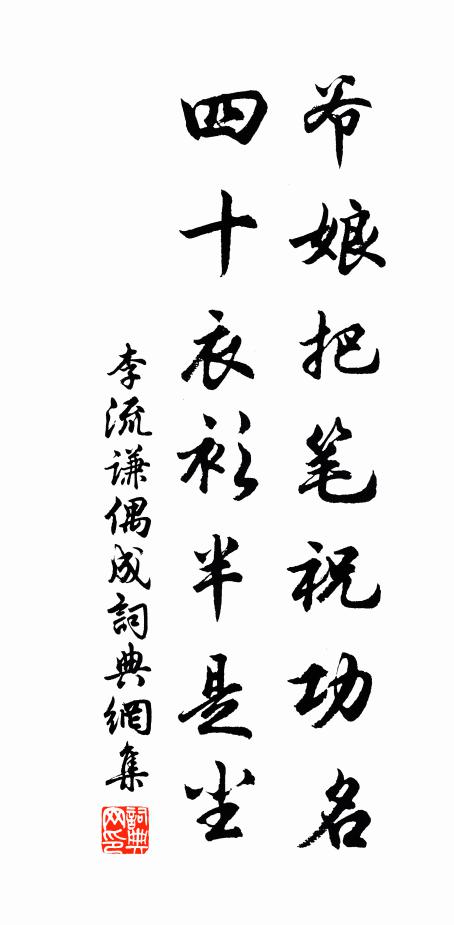 爷娘把笔祝功名
四十衣衫半是尘
李流谦偶成詞典網集
詞典网印